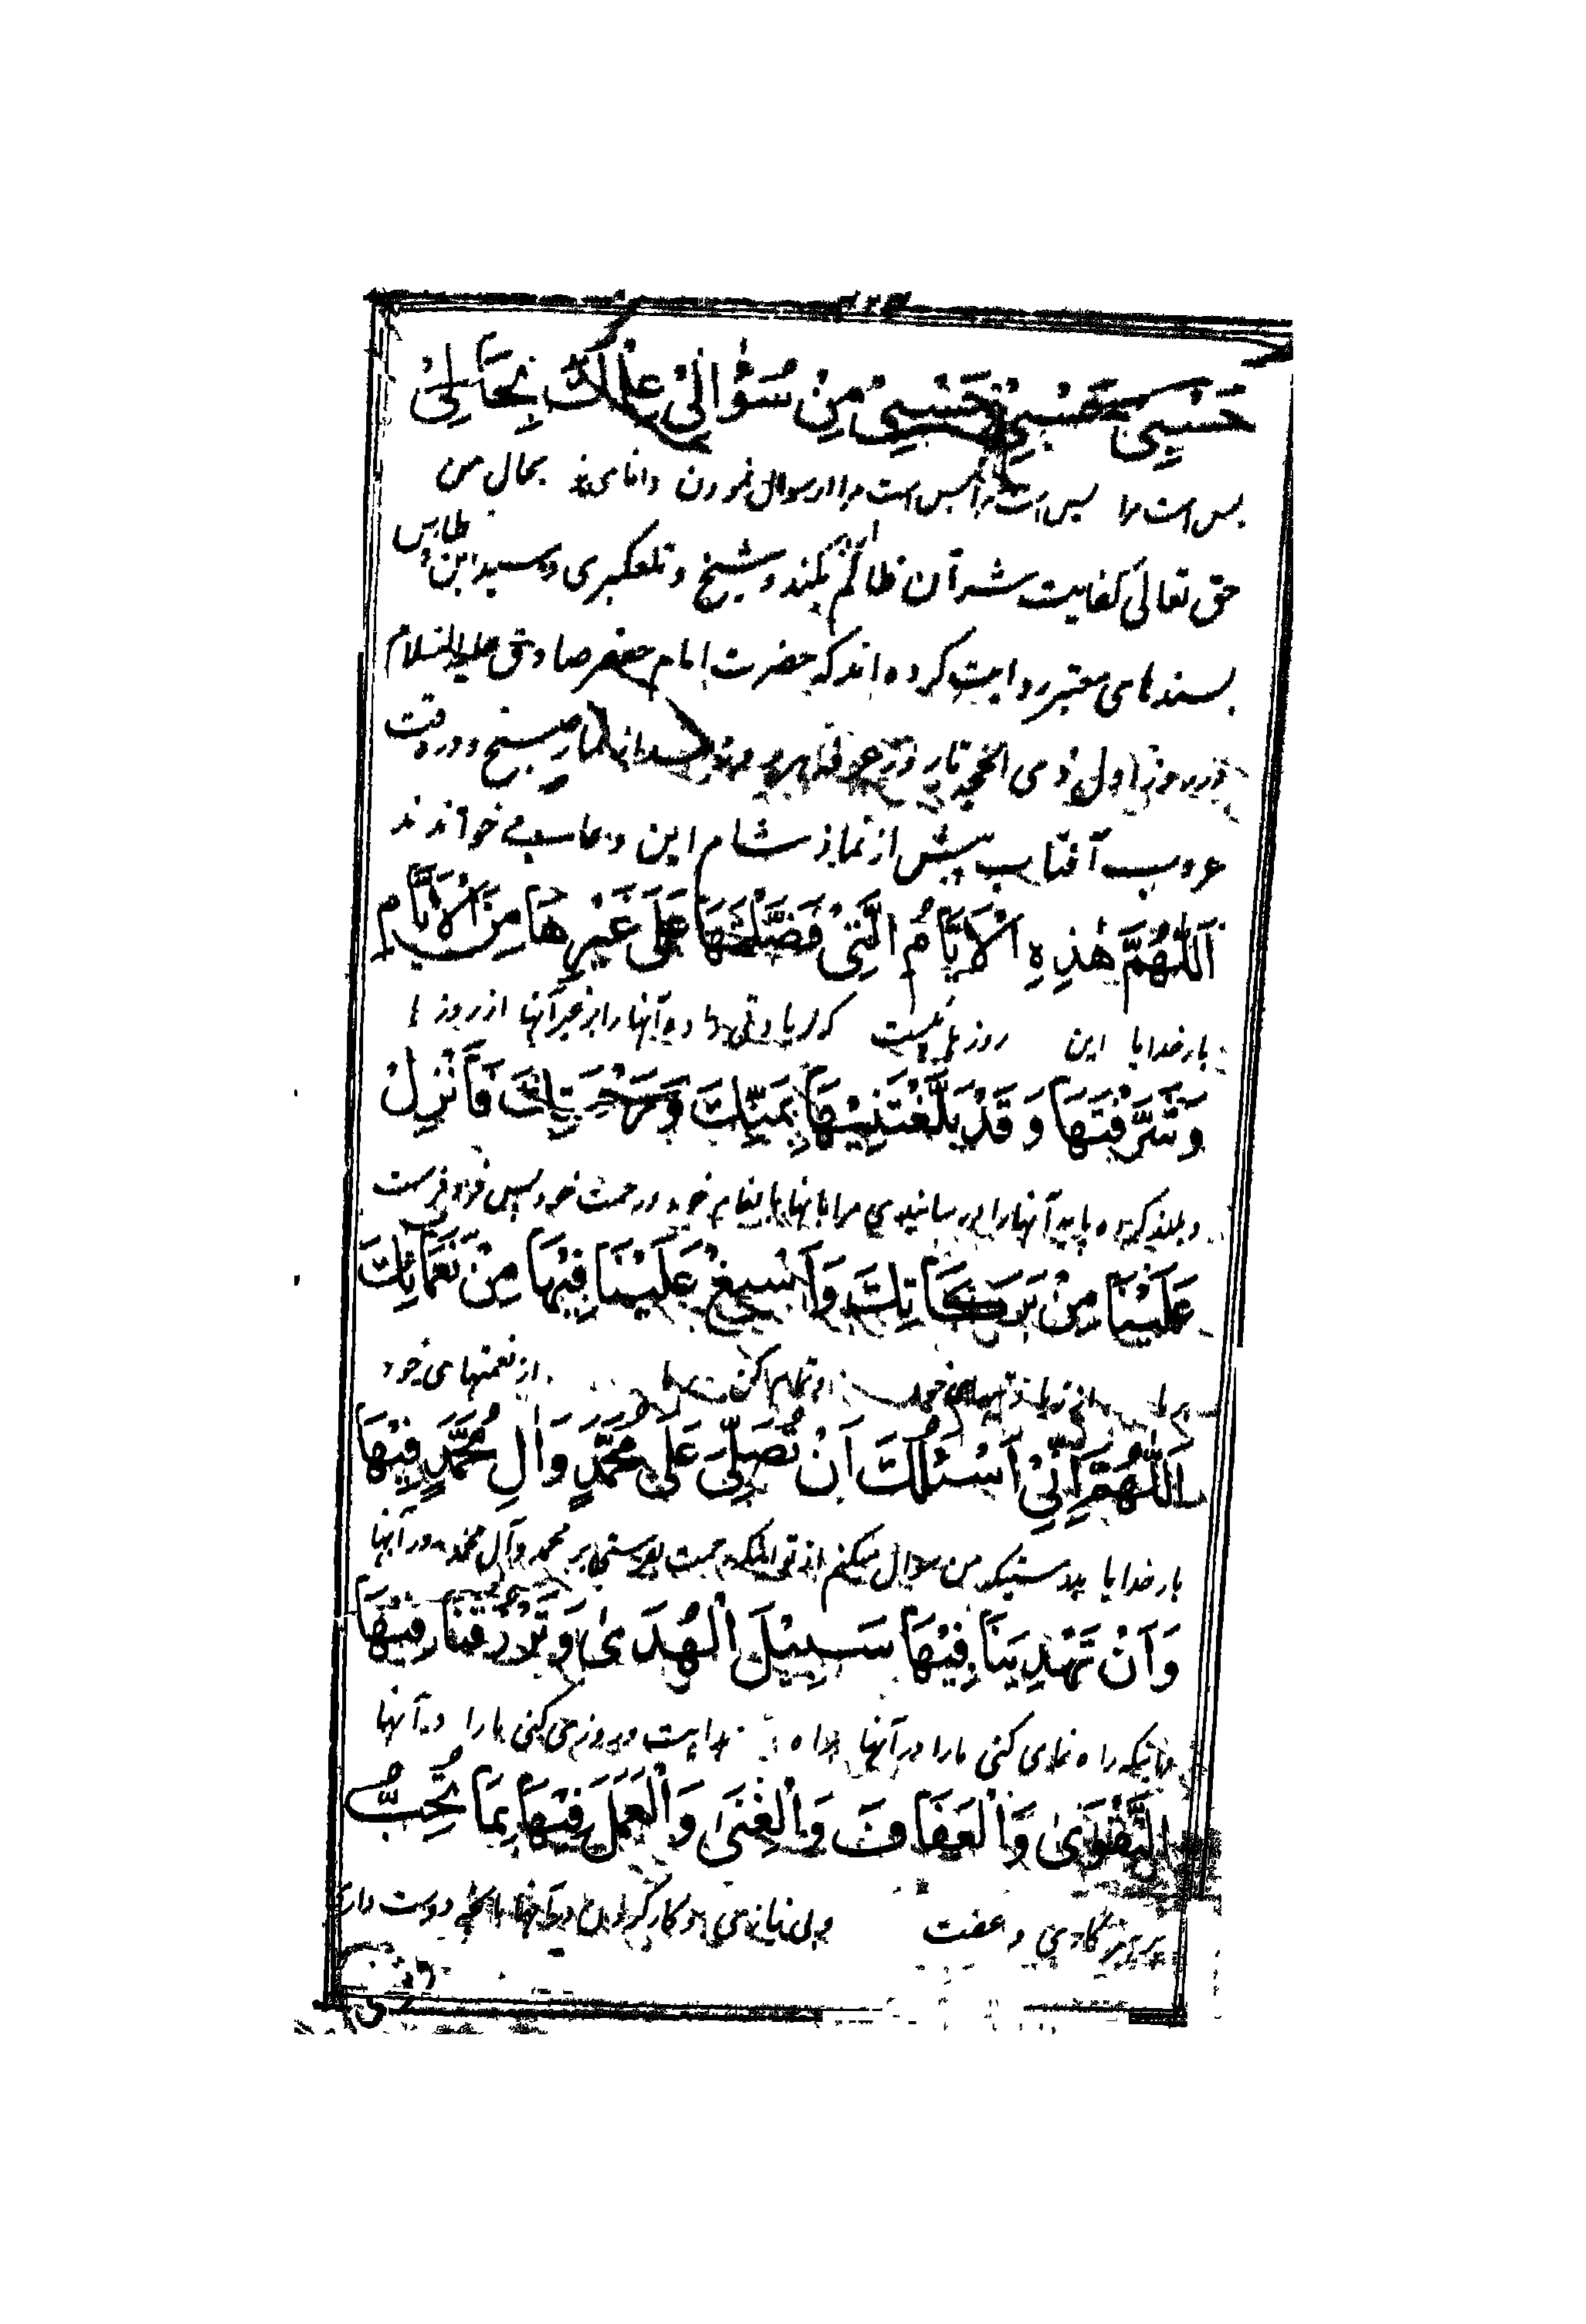 حَسْبِیْ حَسْبِیْ حَسْبِیْ مِنْ سُؤٰالِیْ عِلْمُكَ بِحَالِیْ
بس است مرا بس است مرا بس است مرا از سوال نمودن دانای بحال من
حق تعالی کفایت شر آن ظالم بکند و شیخ و تلعکبری و سید ابن طاوس
بسندهای معتبر روایت کرده اند که حضرت امام جعفر صادق علیه السلام
از روز اول ذی الحجه تا روز عرفه نماز صبح و در وقت
غروب آفتاب پیش از نماز شام این دعا می خواندند
اَللّٰهُمَّ هٰذِهِ الْاَیَّامُ الَّتِیْ فَضَّلْتَهَا عَلٰی غَیْرِهَا مِنَ الْاَیَّامِ
بار خدایا این روزهائیست که زیادتی داده آنها را بر غیر آنها از روزها
وَشَرَّفْتَهَا وَقَدْ بَلَّغْتَنِیْهَا بِمَنِّكَ وَرَحْمَتِكَ فَاَنْزِلْ
و بلند کرده پایه آنها را رسانیدی مرا بانها بانعام خود و رحمت خود پس فرو فرست
عَلَیْنَا مِنْ بَرَكَاتِكَ وَاَسْبِغْ عَلَیْنَا فِیْهَا مِنْ نَعْمَائِكَ
از نعمتهای خود
اَللّٰهُمَّ اِنِّیْ اَسْئَلُكَ اَنْ تُصَلِّیَ عَلٰی مُحَمَّدٍ وَاٰلِ مُحَمَّدٍ فِیْهَا
بار خدایا بدرستیکه من سوال میکنم از تو اینکه رحمت بفرستی بر محمد و آل محمد در آنها
وَاَنْ تَهْدِیَنَا فِیْهَا سَبِیْلَ الْهُدٰی وَتَرْزُقَنَا فِیْهَا
و اینکه راه نمای کنی ما را در آنها راه هدایت و روزی کنی ما را در آنها
التَّقْوٰی وَالْعَفَافَ وَالْغِنٰی وَالْعَمَلَ فِیْهَا بِمَا تُحِبُّ
پرهیزگاری و عفت و بی نیازی و کار کردن در آنها دوست داری